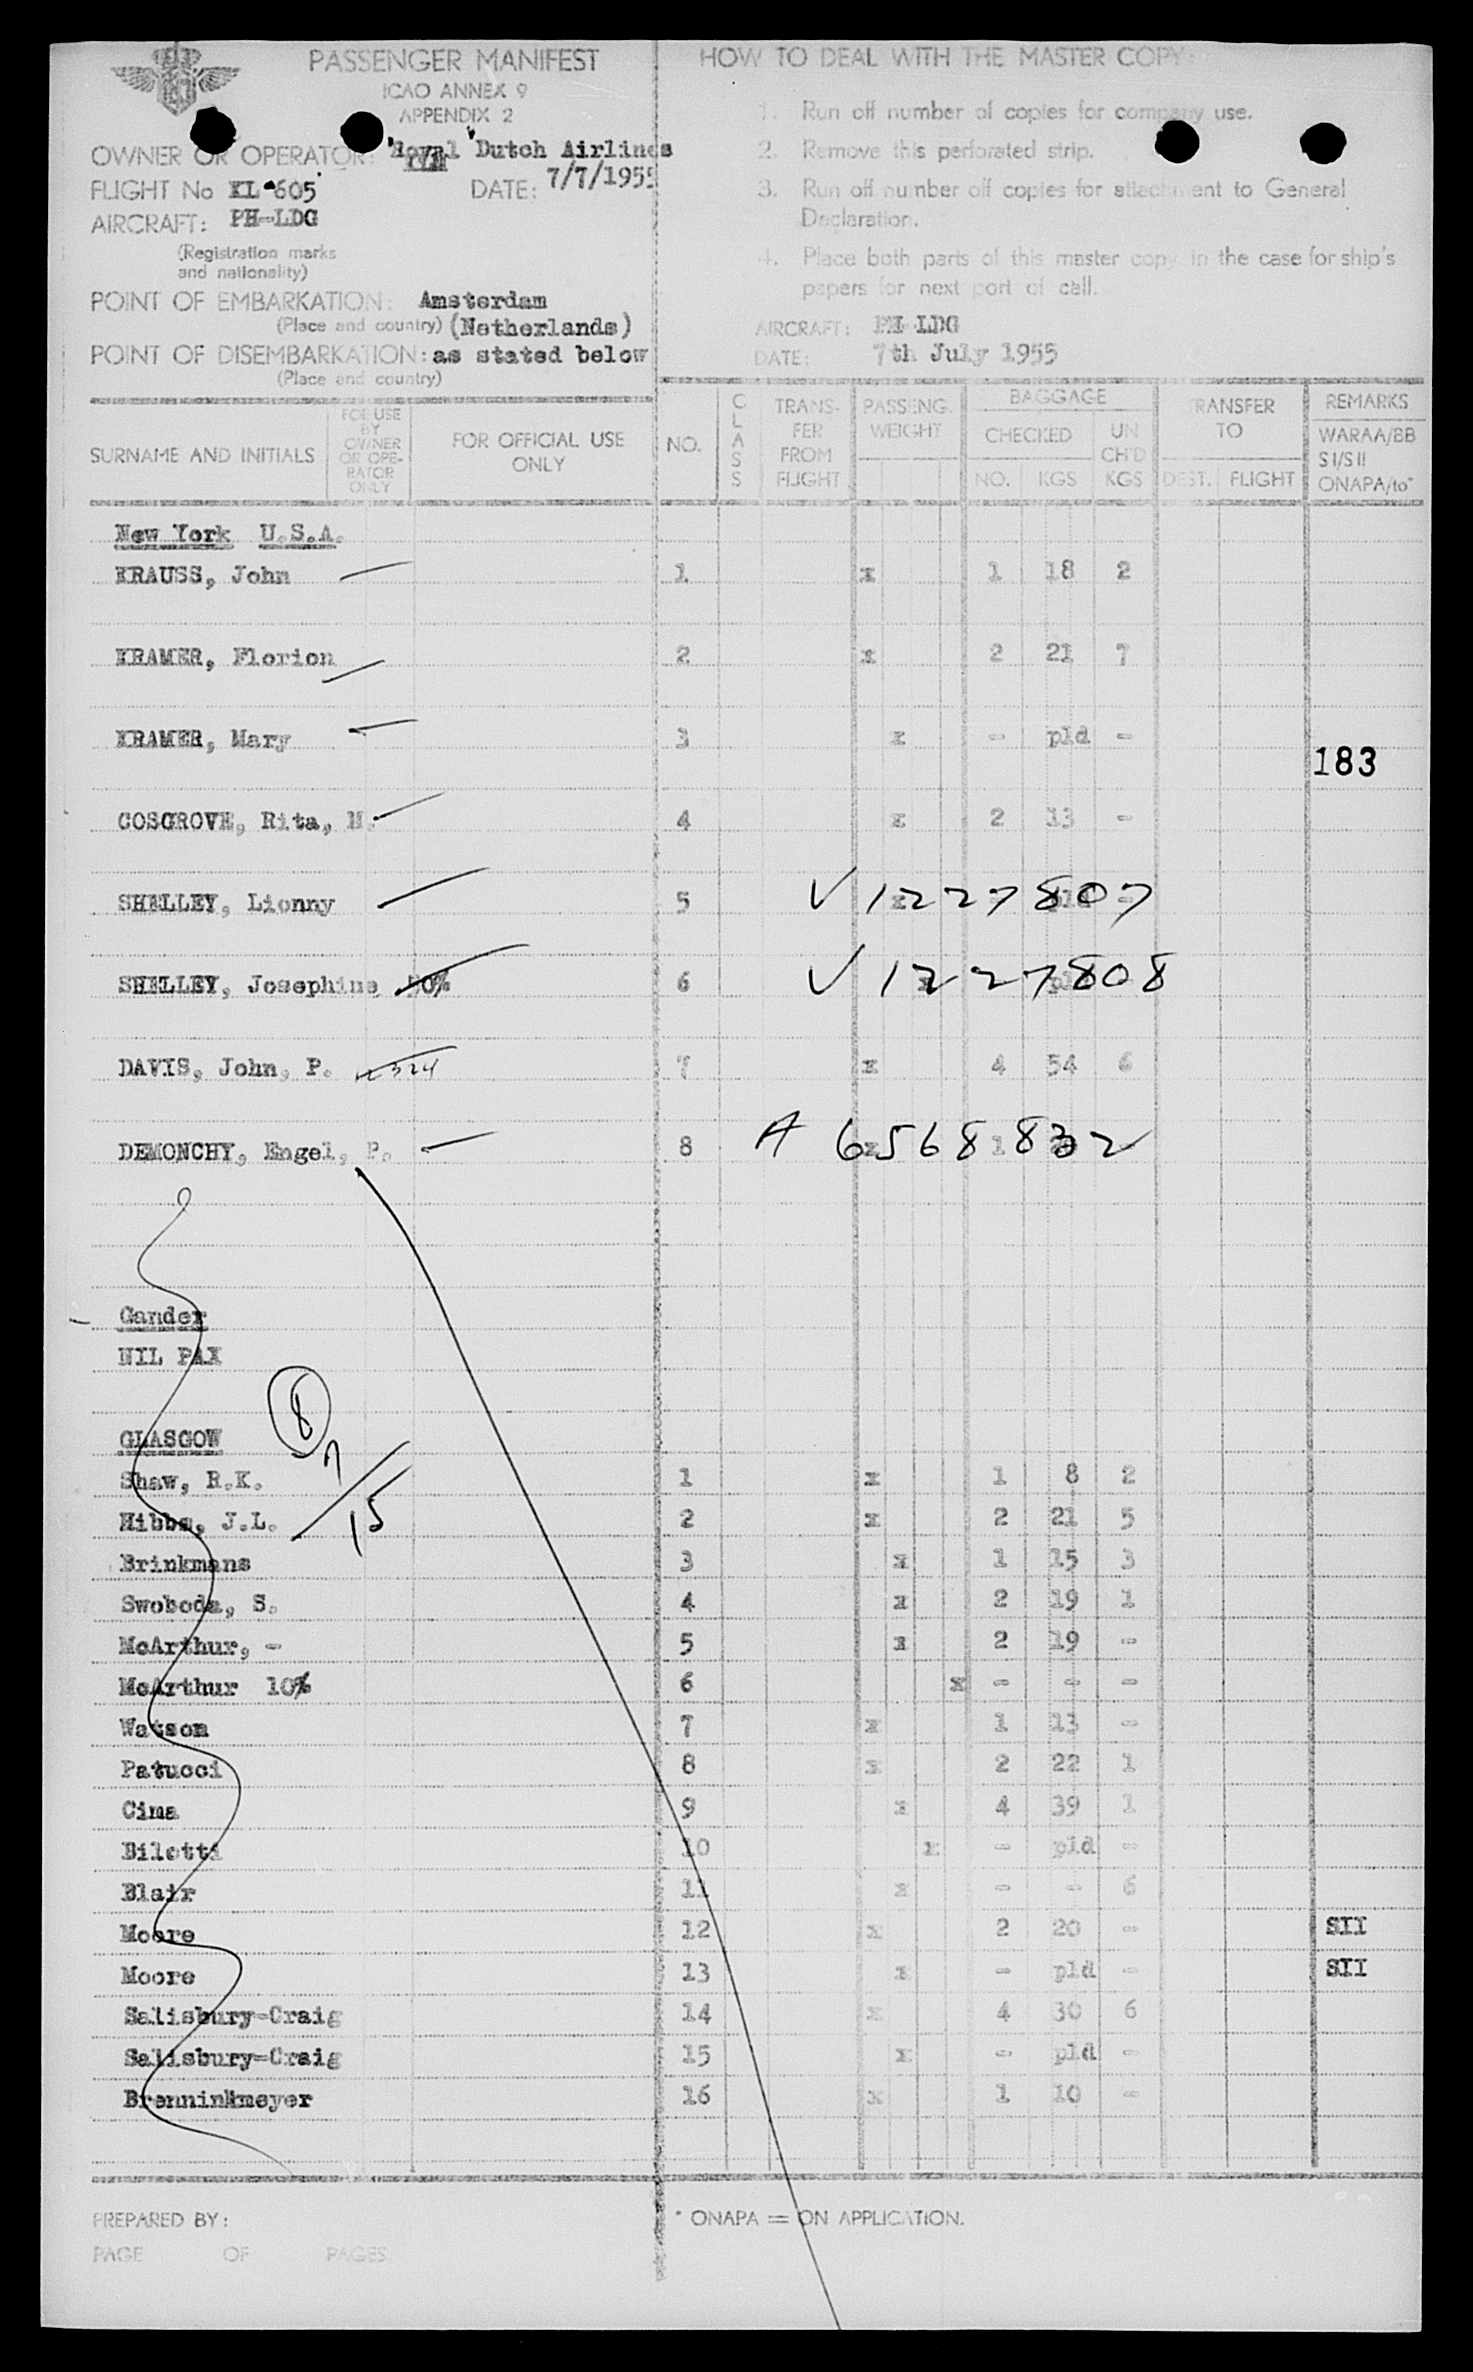 PASSENGER MANIFEST
ICAO ANNEX 9
APPENDIX 2
OWNER OR OPERATOR: "Royal Dutch Airlines"
FLIGHT No KL-605 DATE: 7/7/1955
AIRCRAFT: PH-LDG
(Registration marks
and nationality)
POINT OF EMBARKATION: Amsterdam
(Place and country) (Netherlands)
POINT OF DISEMBARKATION: as stated below
(Place and country)
HOW TO DEAL WITH THE MASTER COPY:
1. Run off number of copies for company use.
2. Remove this perforated strip.
3. Run off number off copies for attachment to General
Declaration.
4. Place both parts of this master copy in the case for ship's
papers for next port of call.
AIRCRAFT: PH-LDG
DATE: 7th July 1955
SURNAME AND INITIALS
FOR USE
BY
OWNER
OR OPE-
RATOR
ONLY
FOR OFFICIAL USE
ONLY
NO.
CLASS
TRANS-
FER
FROM
FLIGHT
PASSENG.
WEIGHT
BAGGAGE
CHECKED
NO. KGS
UN
CH'D
KGS
TRANSFER
TO
DEST. FLIGHT
REMARKS
WARAA/BB
SI/SII
ONAPA/to*
New York U.S.A.
KRAUSS, John 1 x 1 18 2
KRAMER, Florion 2 x 2 21 7
KRAMER, Mary 3 x - pld -
183
COSGROVE, Rita, M. 4 x 2 13 -
SHELLEY, Lionny 5 V 1227807
SHELLEY, Josephine 50% 6 V 1227808
DAVIS, John, P. 7 x 4 54 6
DEMONCHY, Engel, P. 8 A 6568832
Gander
NIL PAX
8
GLASGOW
7/15
Shaw, R.K. 1 x 1 8 2
Hibbs, J.L. 2 x 2 21 5
Brinkmans 3 x 1 15 3
Swoboda, S. 4 x 2 19 1
McArthur, - 5 x 2 19 -
McArthur 10% 6 x - - -
Watson 7 x 1 13 -
Patucci 8 x 2 22 1
Cima 9 x 4 39 1
Biletti 10 x - pld -
Blair 11 x - - 6
Moore 12 x 2 20 - SII
Moore 13 x - pld - SII
Salisbury-Craig 14 x 4 30 6
Salisbury-Craig 15 x - pld -
Brenninkmeyer 16 x 1 10 -
PREPARED BY:
PAGE OF PAGES
* ONAPA = ON APPLICATION.